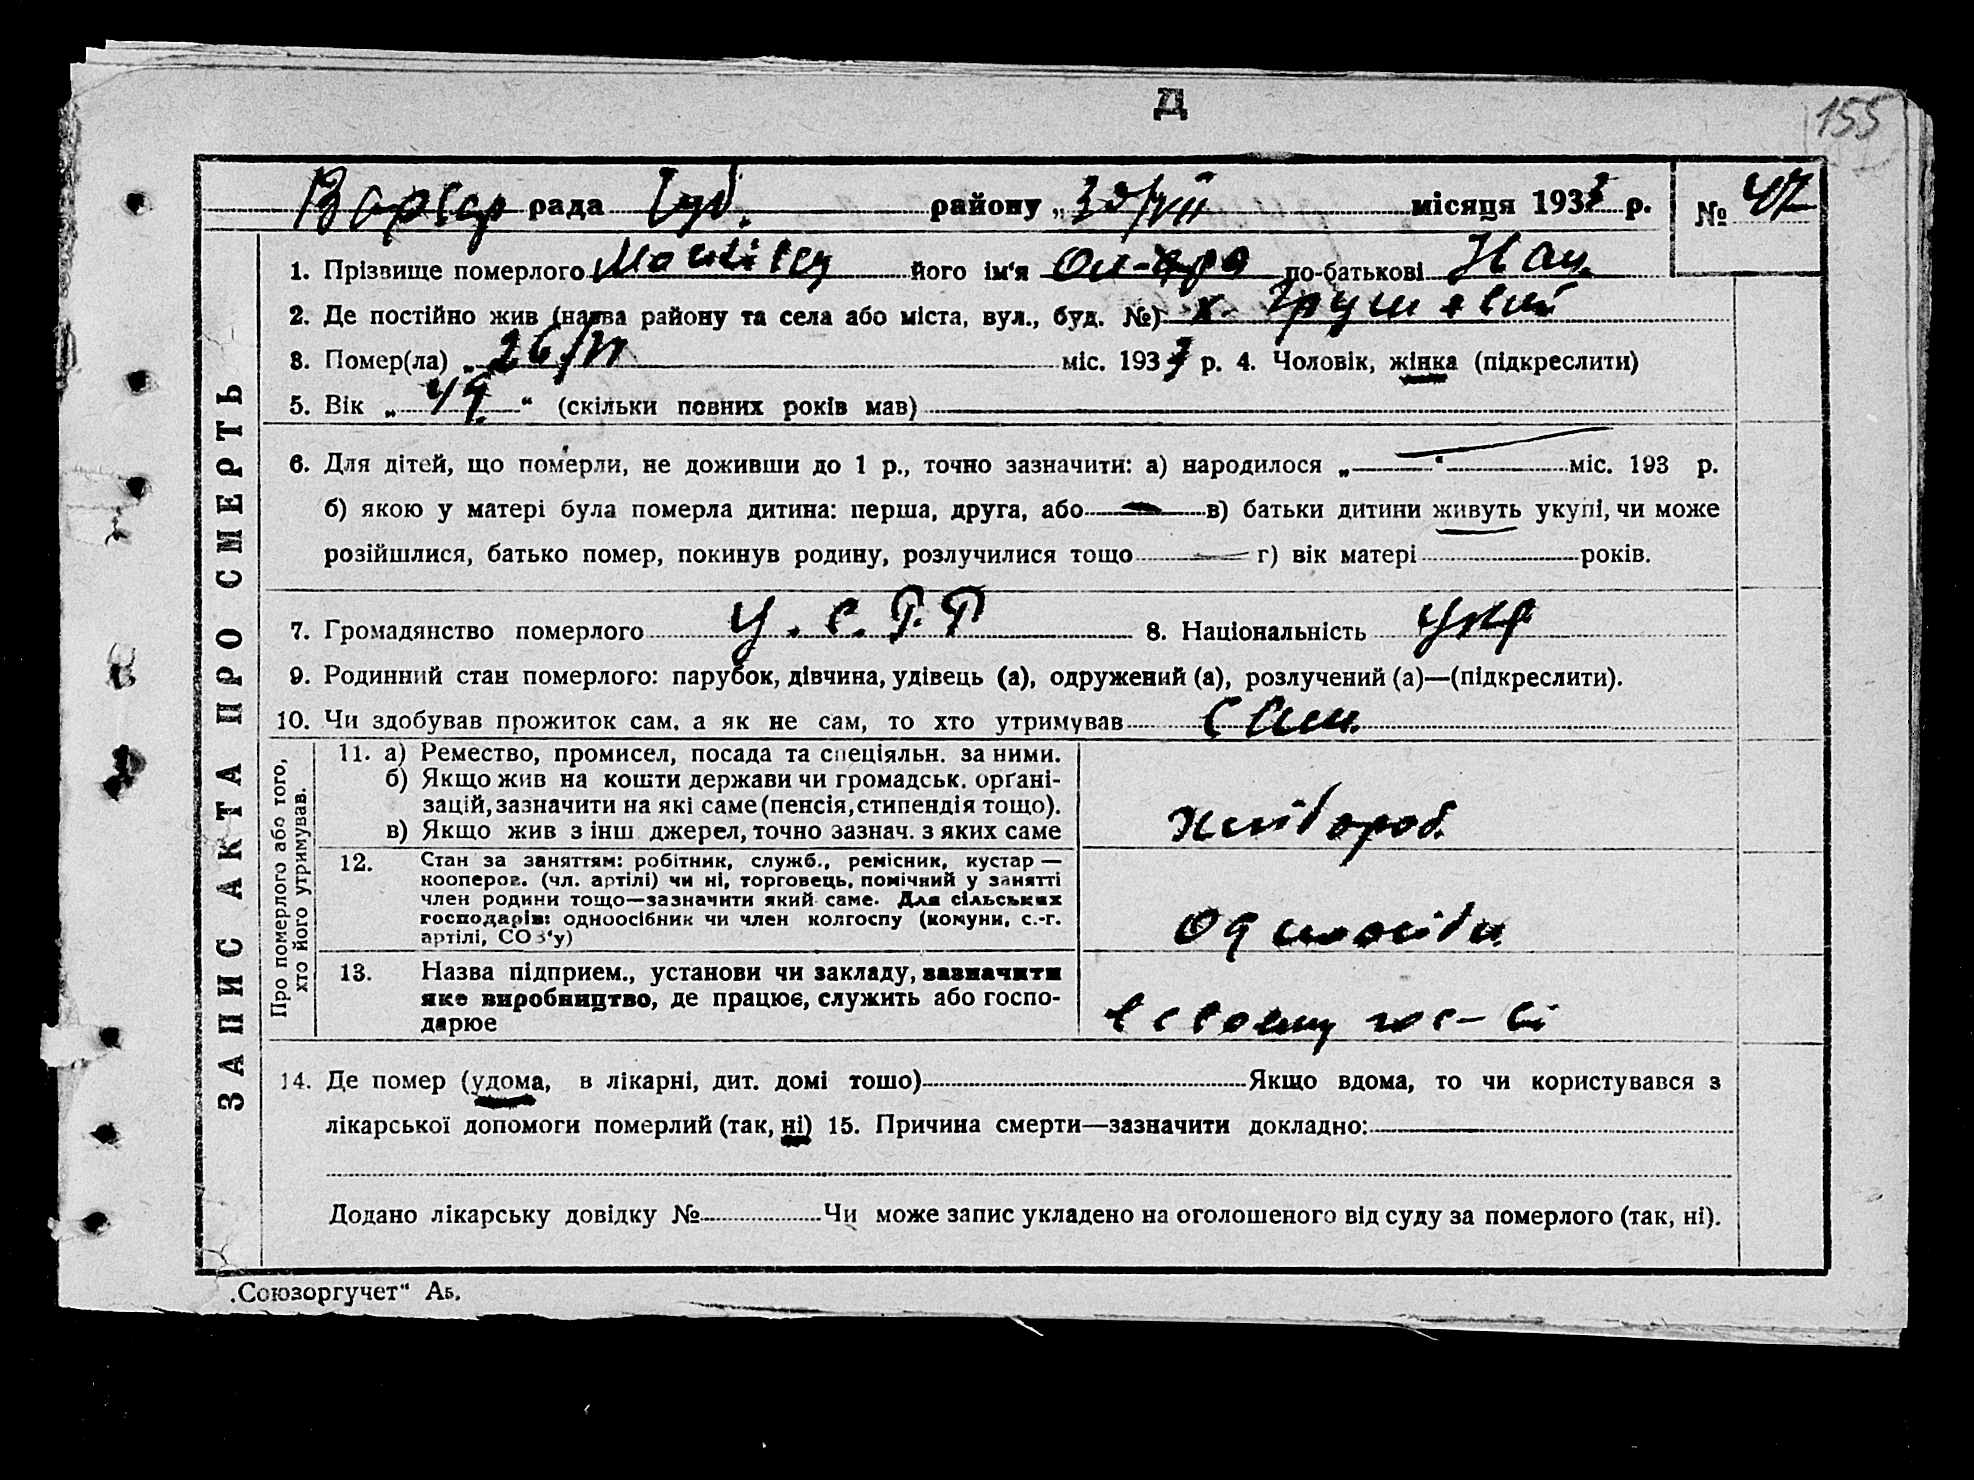 Д
155
Варвар рада Чуб. району „ 30/VII місяця 1933 р. № 47
1. Прізвище померлого його ім'я по-батькові
2. Де постійно жив (назва району та села або міста, вул., буд. №) х. Грушевий
3. Помер(ла) „ 26/ міс. 1933 р. 4. Чоловік, жінка (підкреслити)
5. Вік „ 49 “ (скільки повних років мав)
6. Для дітей, що померли, не доживши до 1 р., точно зазначити: а) народилося „ “ міс. 193 р.
б) якою у матері була померла дитина: перша, друга, або в) батьки дитини живуть укупі, чи може
розійшлися, батько помер, покинув родину, розлучилися тощо г) вік матері років.
7. Громадянство померлого У.С.Р.Р 8. Національність укр
9. Родинний стан померлого: парубок, дівчина, удівець (а), одружений (а), розлучений (а)—(підкреслити).
10. Чи здобував прожиток сам, а як не сам, то хто утримував сам.
ЗАПИС АКТА ПРО СМЕРТЬ
Про померлого або того,
хто його утримував.
11. а) Ремество, промисел, посада та спеціяльн. за ними.
б) Якщо жив на кошти держави чи громадськ. орґані-
зацій, зазначити на які саме (пенсія, стипендія тощо).
в) Якщо жив з інш джерел, точно зазнач. з яких саме
хлібороб.
12. Стан за заняттям: робітник, служб., ремісник, кустар —
кооперов. (чл. артілі) чи ні, торговець, помічний у занятті
член родини тощо—зазначити який саме. Для сільських
господарів: одноосібник чи член колгоспу (комуни, с.-г.
артілі, СОЗ'у)
Одноосібн.
13. Назва підприєм., установи чи закладу, зазначити
яке виробництво, де працює, служить або госпо-
дарює
в своему гос-ві
14. Де помер (удома, в лікарні, дит. домі тошо) Якщо вдома, то чи користувався з
лікарської допомоги померлий (так, ні) 15. Причина смерти—зазначити докладно:
Додано лікарську довідку № Чи може запис укладено на оголошеного від суду за померлого (так, ні).
„Союзоргучет“ Аб.